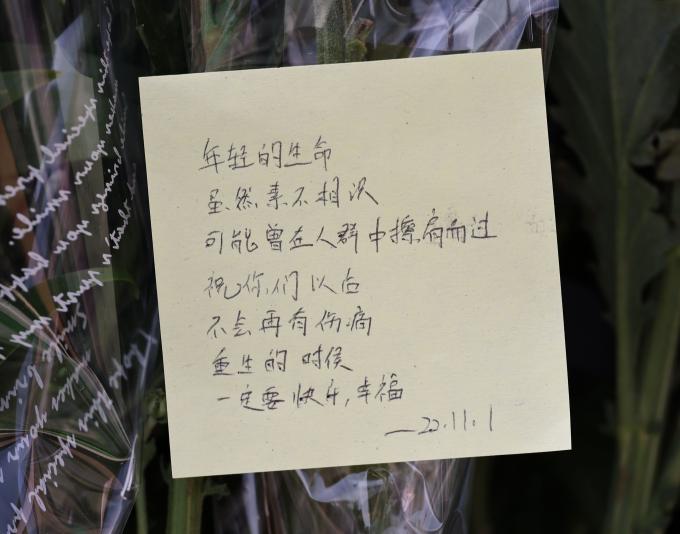 年轻的生命
虽然素不相识
可能曾在人群中擦肩而过
祝你们以后
不会再有伤痛
重生的时侯
一定要快乐,幸福
—22.11.1